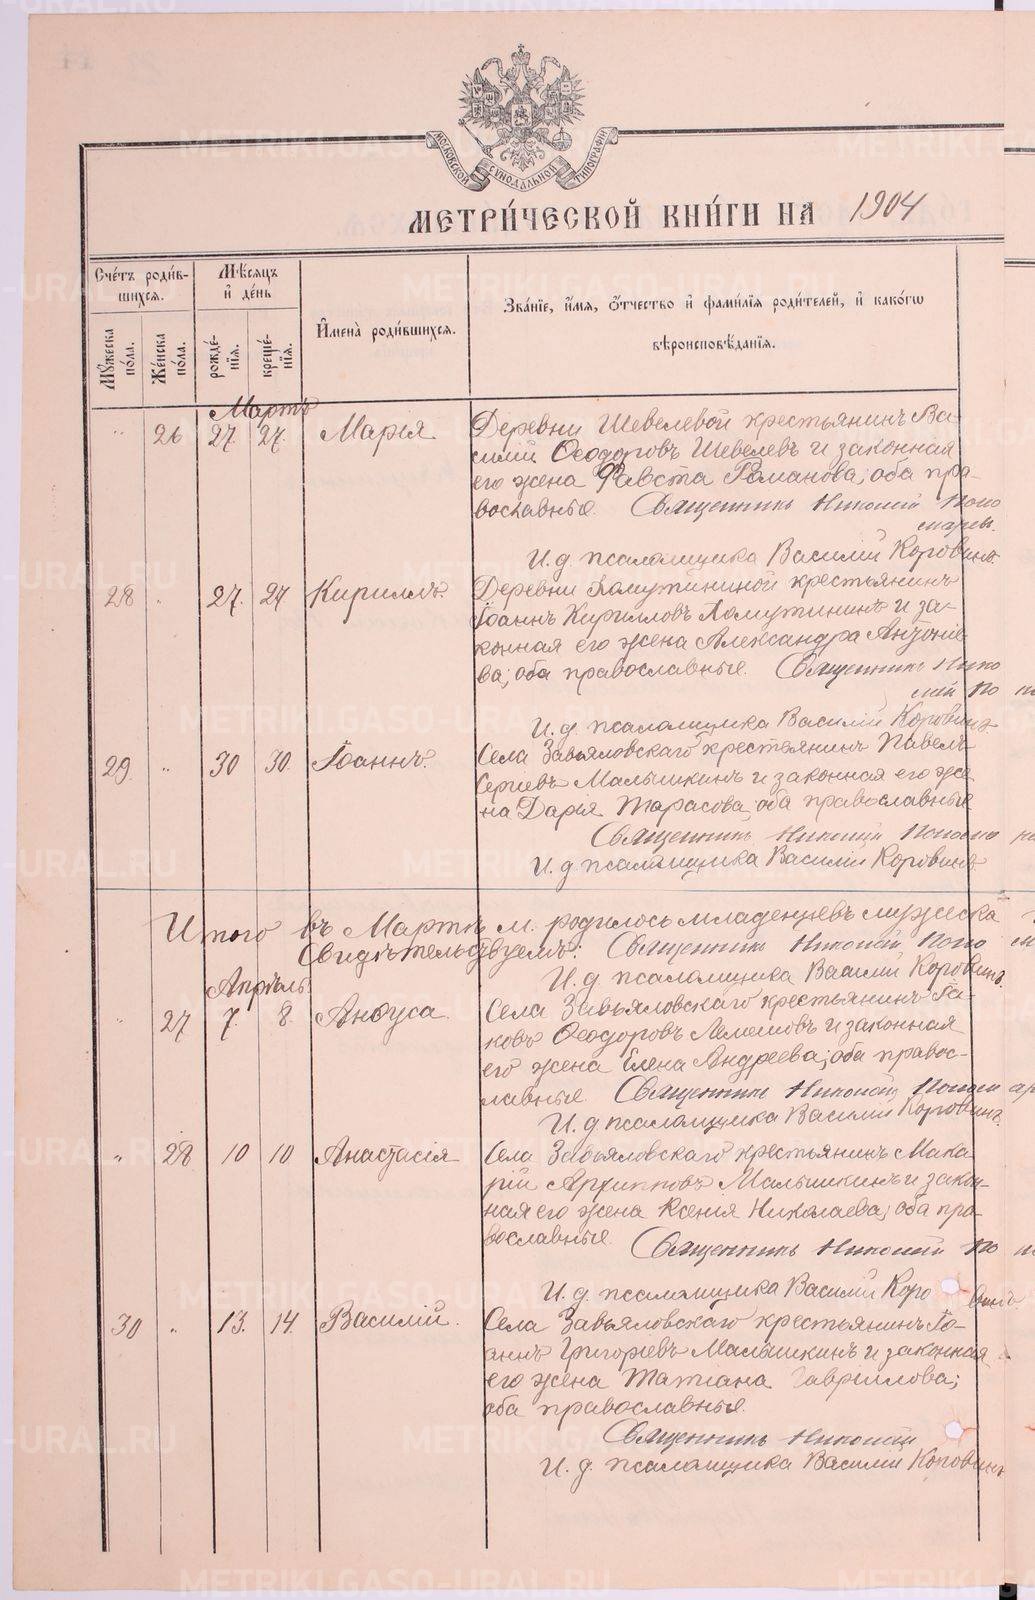 МОСКОВСКОЙ СѴНОДАЛЬНОЙ ТИПОГРАФІИ
МЕТРИ́ЧЕСКОЙ КНИ́ГИ НА 1904
Сче́тъ роди́в-
шихся.
Мѣ́сяцъ
и҆ де́нь
И҆мена̀ роди́вшихся.
Зва́нїе, и҆́мя, ѻ҆́тчество и҆ фами́лїя роди́телей, и҆ како́гѡ
вѣроисповѣ́данїя.
Мꙋ́жеска по́ла.
Же́нска по́ла.
рожде́-нїя.
креще́-нїя.
Мартъ
" 26 27. 27. Марія Деревни Шевелевой крестьянинъ Ва-
силій Ѳеодоровъ Шевелевъ и законная
его жена Фавста Романова; оба пра-
вославные. Священникъ Николай Поно
марев.
И. д. псаломщика Василій Коровинъ.
28 " 27. 27 Кириллъ Деревни Хомутининой крестьянинъ
Іоаннъ Кирилловъ Хомутининъ и за-
конная его жена Александра Антоніе-
ва; оба православные. Священникъ Нико
лай По
И. д. псаломщика Василій Коровинъ
29. " 30 30. Іоаннъ. Села Завьяловскаго крестьянинъ Павелъ
Сергіевъ Малышкинъ и законная его же
на Дарія Тарасова, оба православные
Священникъ Николай Поном
И. д. псаломщика Василій Коровинъ
Итого въ Мартѣ м. родилось младенцевъ мужеска
Свидѣтельствуемъ: Священникъ Николай Поно
И. д. псаломщика Василій Коровинъ.
Апрѣль.
" 27 7. 8. Анѳуса Села Завьяловскаго крестьянинъ Іа-
ковъ Ѳеодоровъ Лемешовъ и законная
его жена Елена Андреева; оба правос-
лавные. Священникъ Николай Поном ар
И. д. псаломщика Василій Коровинъ.
" 28 10 10 Анастасія Села Завьяловскаго крестьянинъ Мака
рій Архипповъ Малышкинъ и закон-
ная его жена Ксенія Николаева; оба пра-
вославные. Священникъ Николай По
И. д. псаломщика Василій Коро винъ.
30 " 13. 14. Василій. Села Завьяловскаго крестьянинъ Іо-
аннъ Григоріевъ Малышкинъ и законная
его жена Татіана Гавріилова;
оба православные.
Священникъ Николай
И. д. псаломщика Василій Коровинъ
METRIKI.GASO-URAL.RU